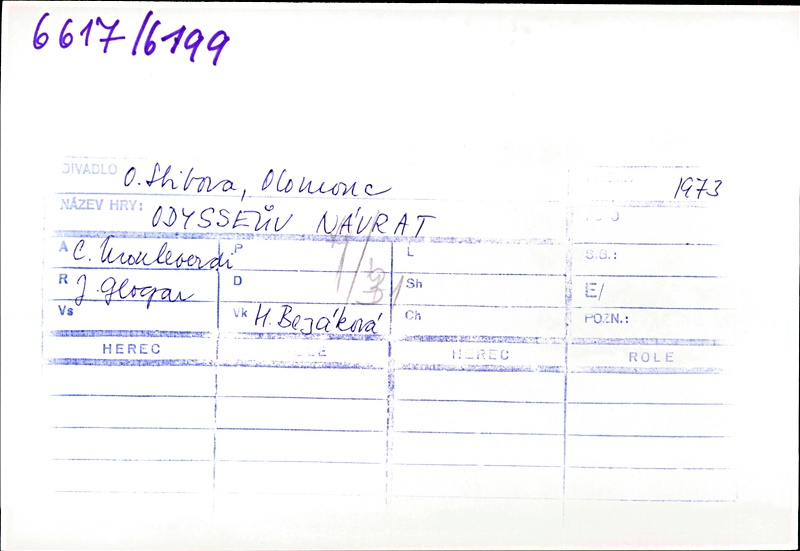 6617/6199
DIVADLO O. Stibora, Olomouc 1973
NÁZEV HRY: ODYSSEŮV NÁVRAT
A C. Monteverdi P L S.G.:
R J. Glogar D Sh E/
Vs Vk H. Bezáková Ch POZN.:
HEREC ROLE HEREC ROLE